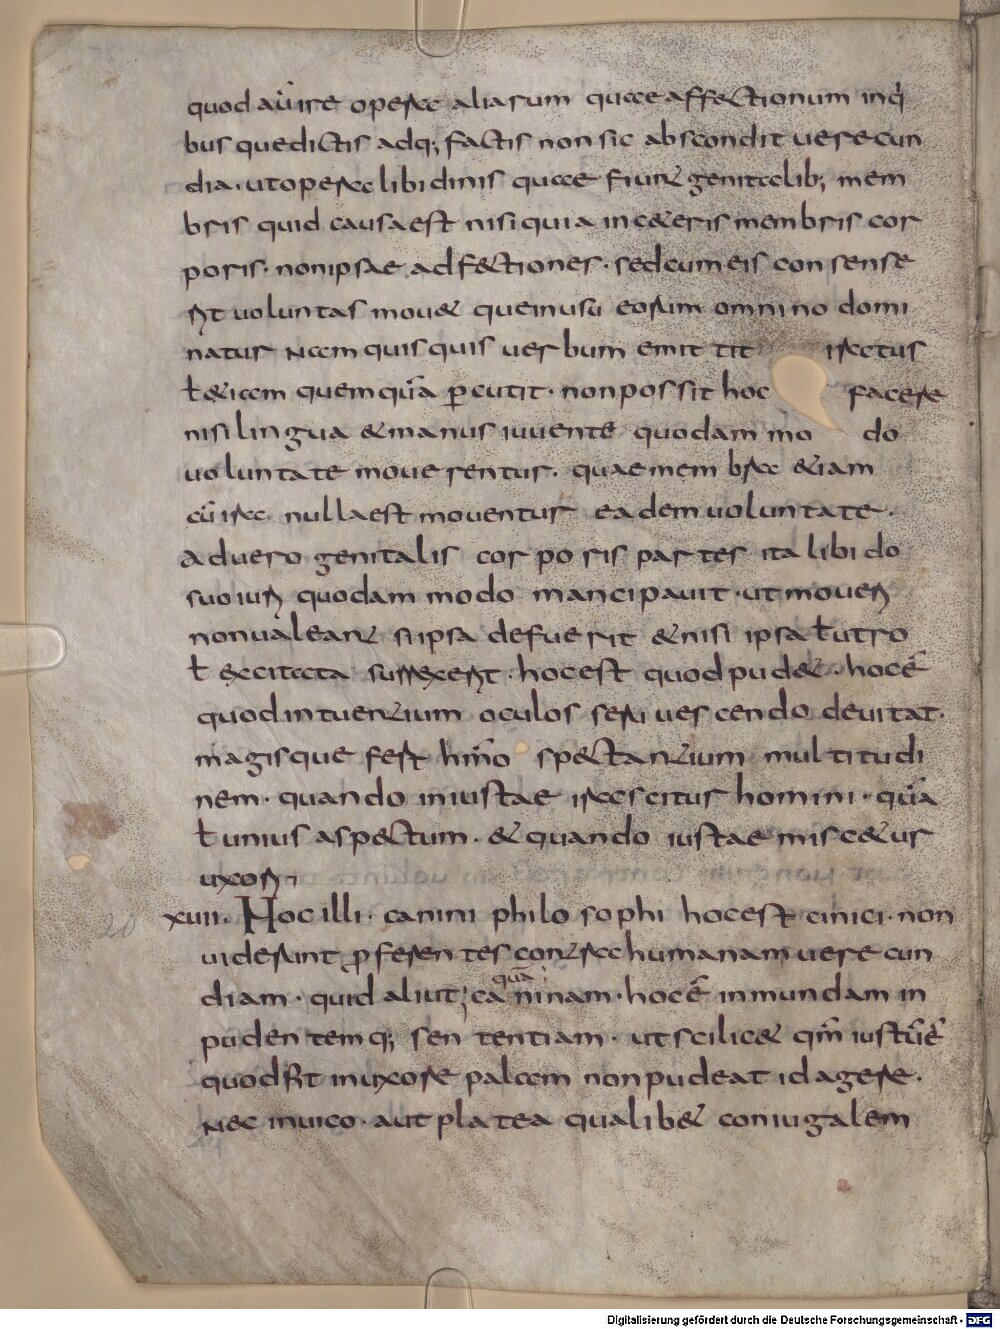 quod aūt irę opera aliarumque affectionum in q̄
bus quedictis adq; factis non sic abscondit uerecun
dia · ut opera libidinis que fiunt genitalib; mem
bris quid causa est nisi quia in ceteris membris cor
poris · non ipsae adfectiones · sed cum eis consense
rit uoluntas mouet que in usū eorum omnino domi
natur nam quisquis uerbum emittit iratus
ł etiam quemquā ꝑcutit · non possit hoc facere
nisi lingua & manus iuuente quodam modo
uoluntate mouerentur . quae membra etiam
cū ira nulla est mouentur eadem uoluntate .
ad uero genitalis corporis partes ita libido
suo iuri quodam modo mancipauit · ut moueri
non ualeant si ipsa defuerit & nisi ipsa ł utro
ł excitata surrexerit · hoc est quod pudet · hoc ē
quod intuentium oculos erubescendo deuitat ·
magisque fert homo spectantium multitudi
nem · quando iniustae irascitur homini · quā
ł unius aspectum · & quando iustae miscetur
uxori
xuiii. Hoc illi · canini philosophi hoc est cinici · non
uiderunt ꝓferentes contra humanam uerecun
diam · quid aliut; quā caninam · hoc ē inmundam in
pudentemq; sententiam · ut scilicet qm̄ iustū ē
quod fit in uxore palam non pudeat id agere .
nec in uico · aut platea qualibet coniugalem
20
Digitalisierung gefördert durch die Deutsche Forschungsgemeinschaft - DFG